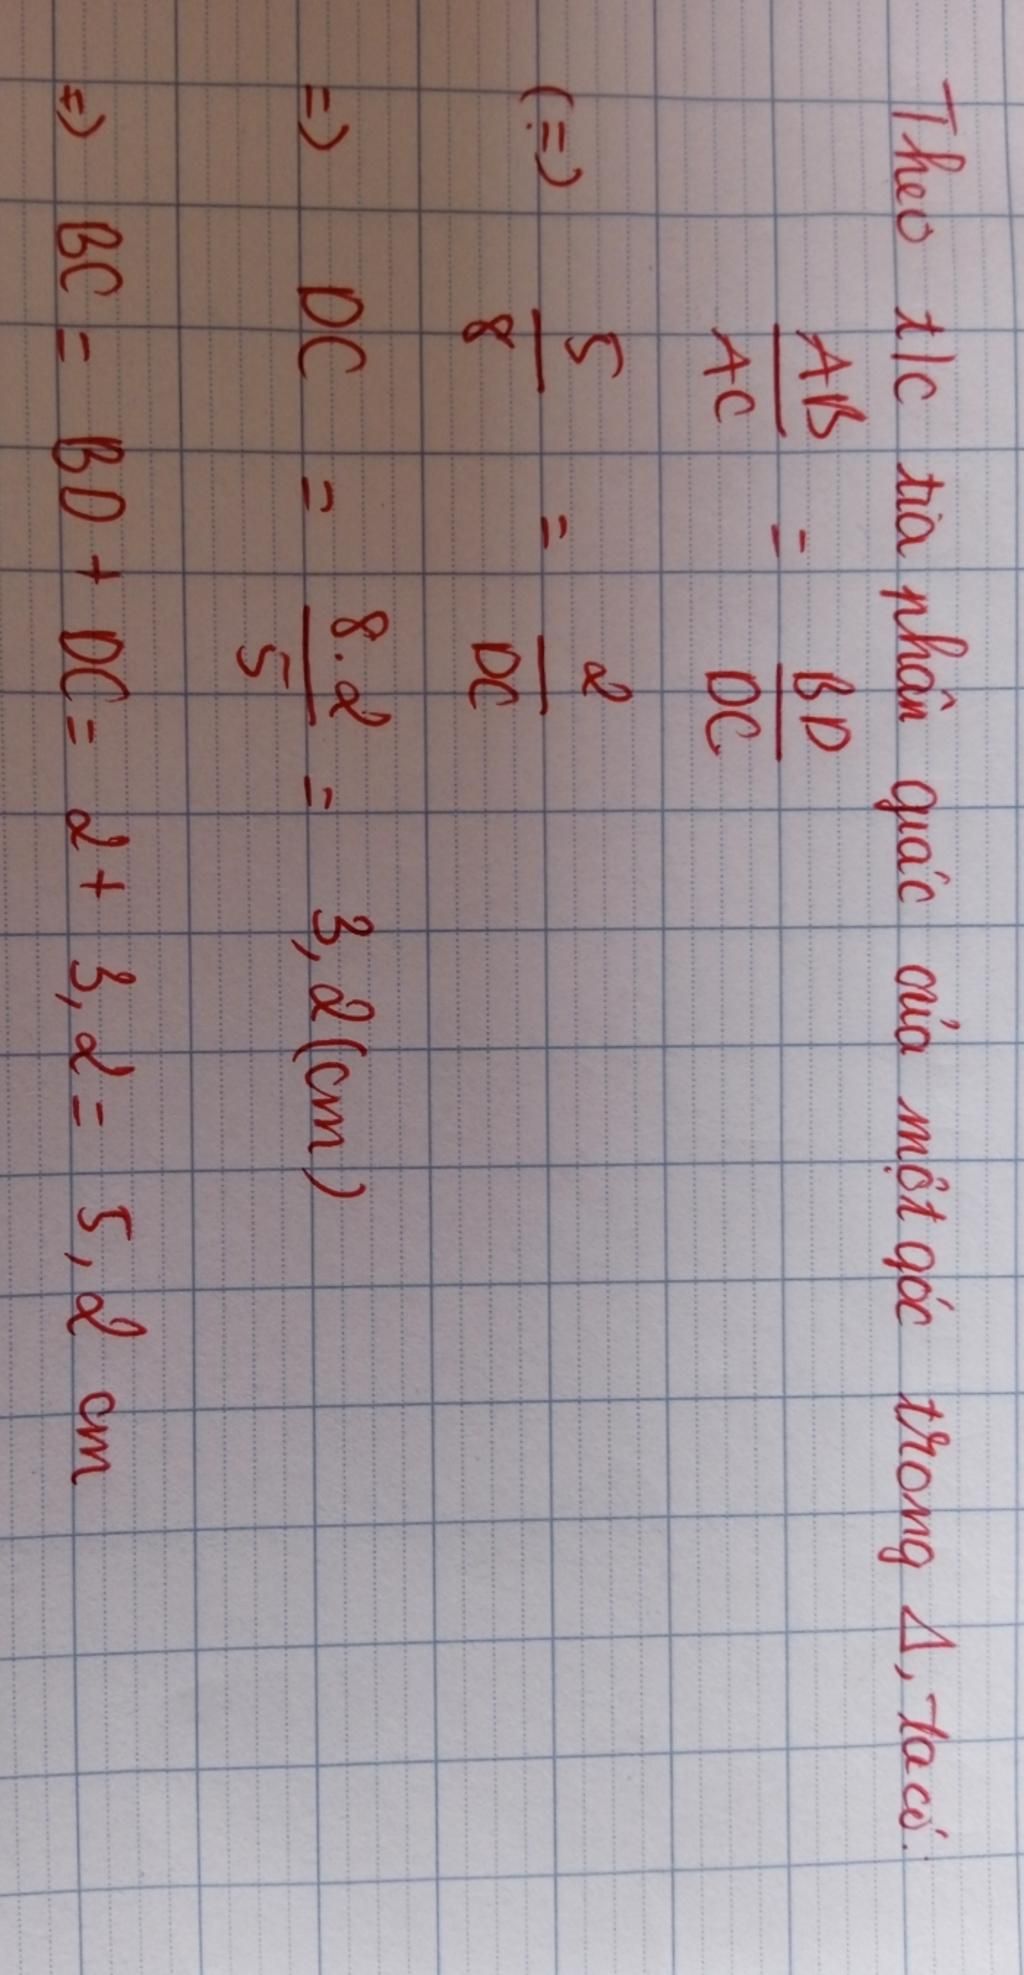 Theo t/c tia phân giác của một góc trong Δ, ta có:
AB/AC = BD/DC
(=) 5/8 = 2/DC
=) DC = 8.2/5 = 3,2 (cm)
=) BC = BD + DC = 2 + 3,2 = 5,2 cm